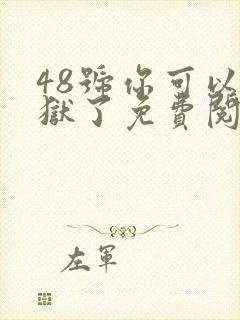 48號你可以
獄了免費閱
左軍